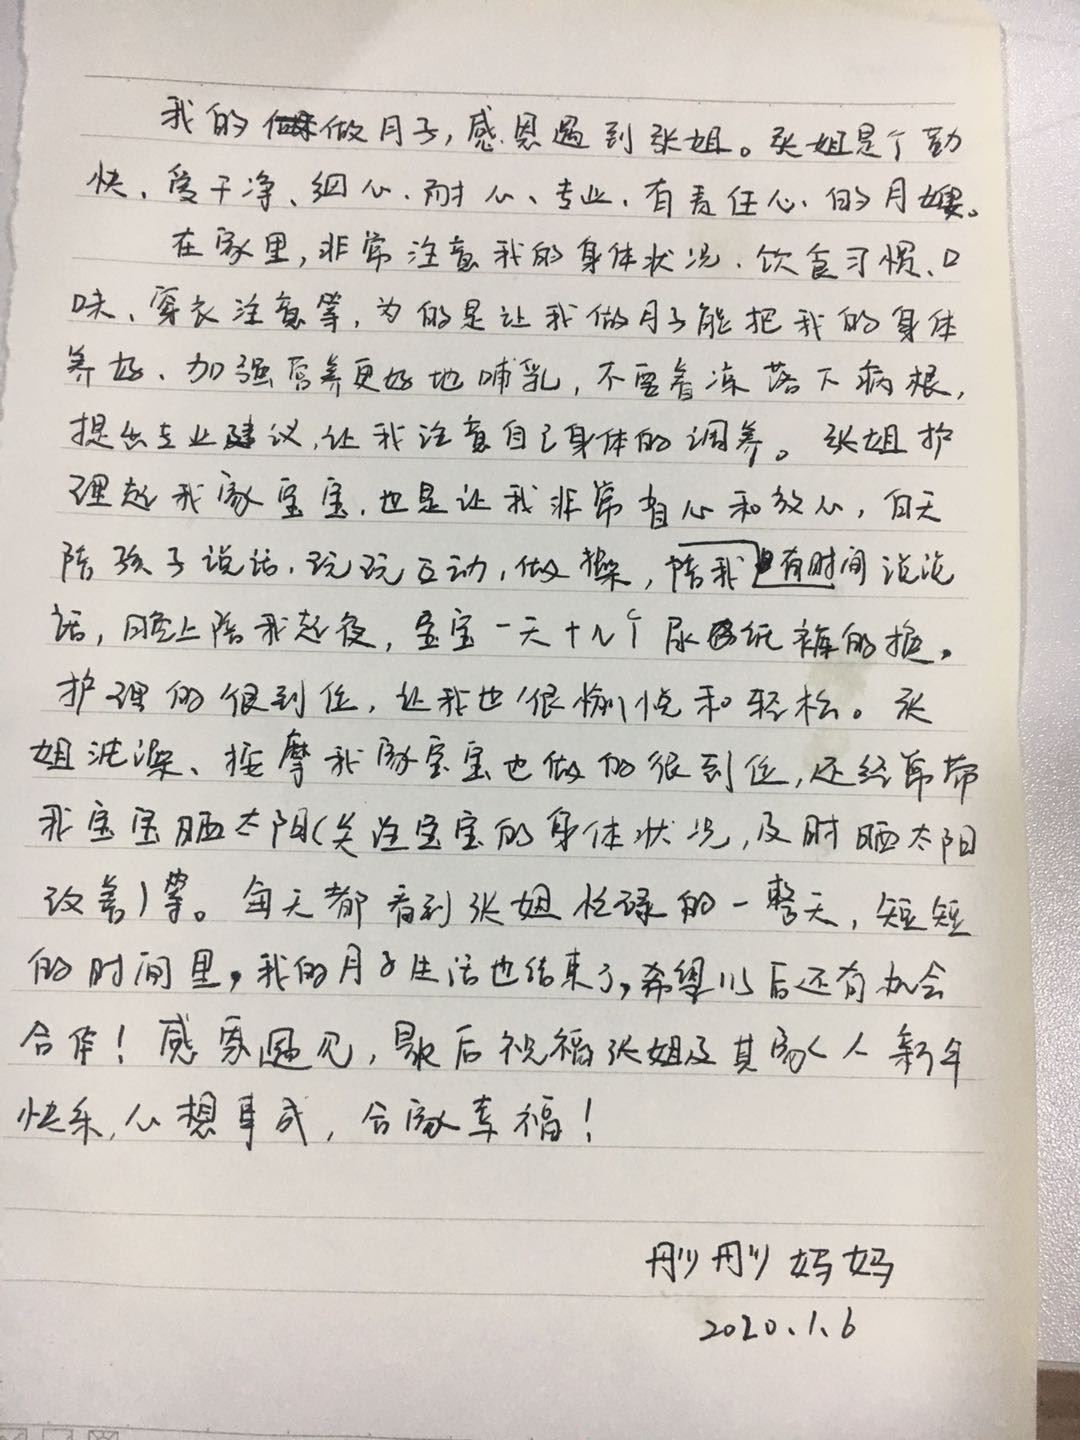 我的做月子,感恩遇到张姐。张姐是个勤
快、爱干净、细心、耐心、专业、有责任心、的月嫂。
在家里,非常注意我的身体状况、饮食习惯、口
味、穿衣注意等,为的是让我做月子能把我的身体
养好、加强营养更好地哺乳,不要着冻落下病根,
提出专业建议,让我注意自己身体的调养。张姐护
理起我家宝宝,也是让我非常省心和放心,白天
陪孩子说话、玩玩互动,做操,陪我有时间说说
话,晚上陪我起夜,宝宝一天十几个尿纸裤的换,
护理的很到位,让我也很愉悦和轻松。张
姐洗澡、按摩我家宝宝也做的很到位,还经常带
我宝宝晒太阳(关注宝宝的身体状况,及时晒太阳
改善)等。每天都看到张姐忙碌的一整天,短短
的时间里,我的月子生活也结束了,希望以后还有机会
合作!感恩遇见,最后祝福张姐及其家人新年
快乐,心想事成,合家幸福!
妈妈
2020.1.6